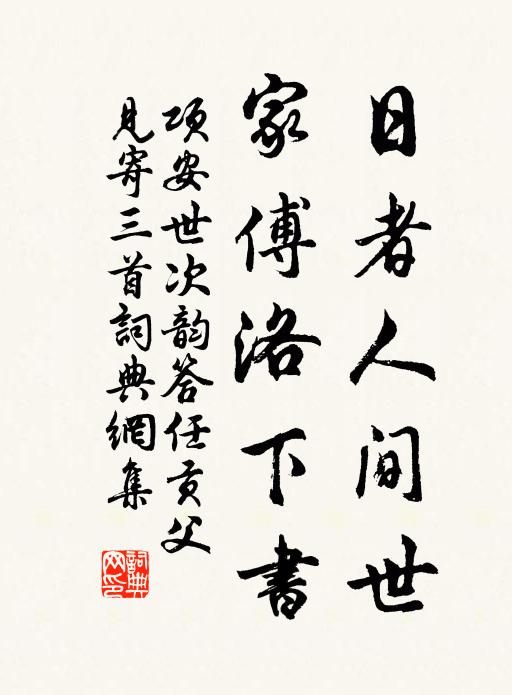 日者人间世
家傅洛下書
项安世次韵答任贡父
見寄三首詞典網集
詞典
网印